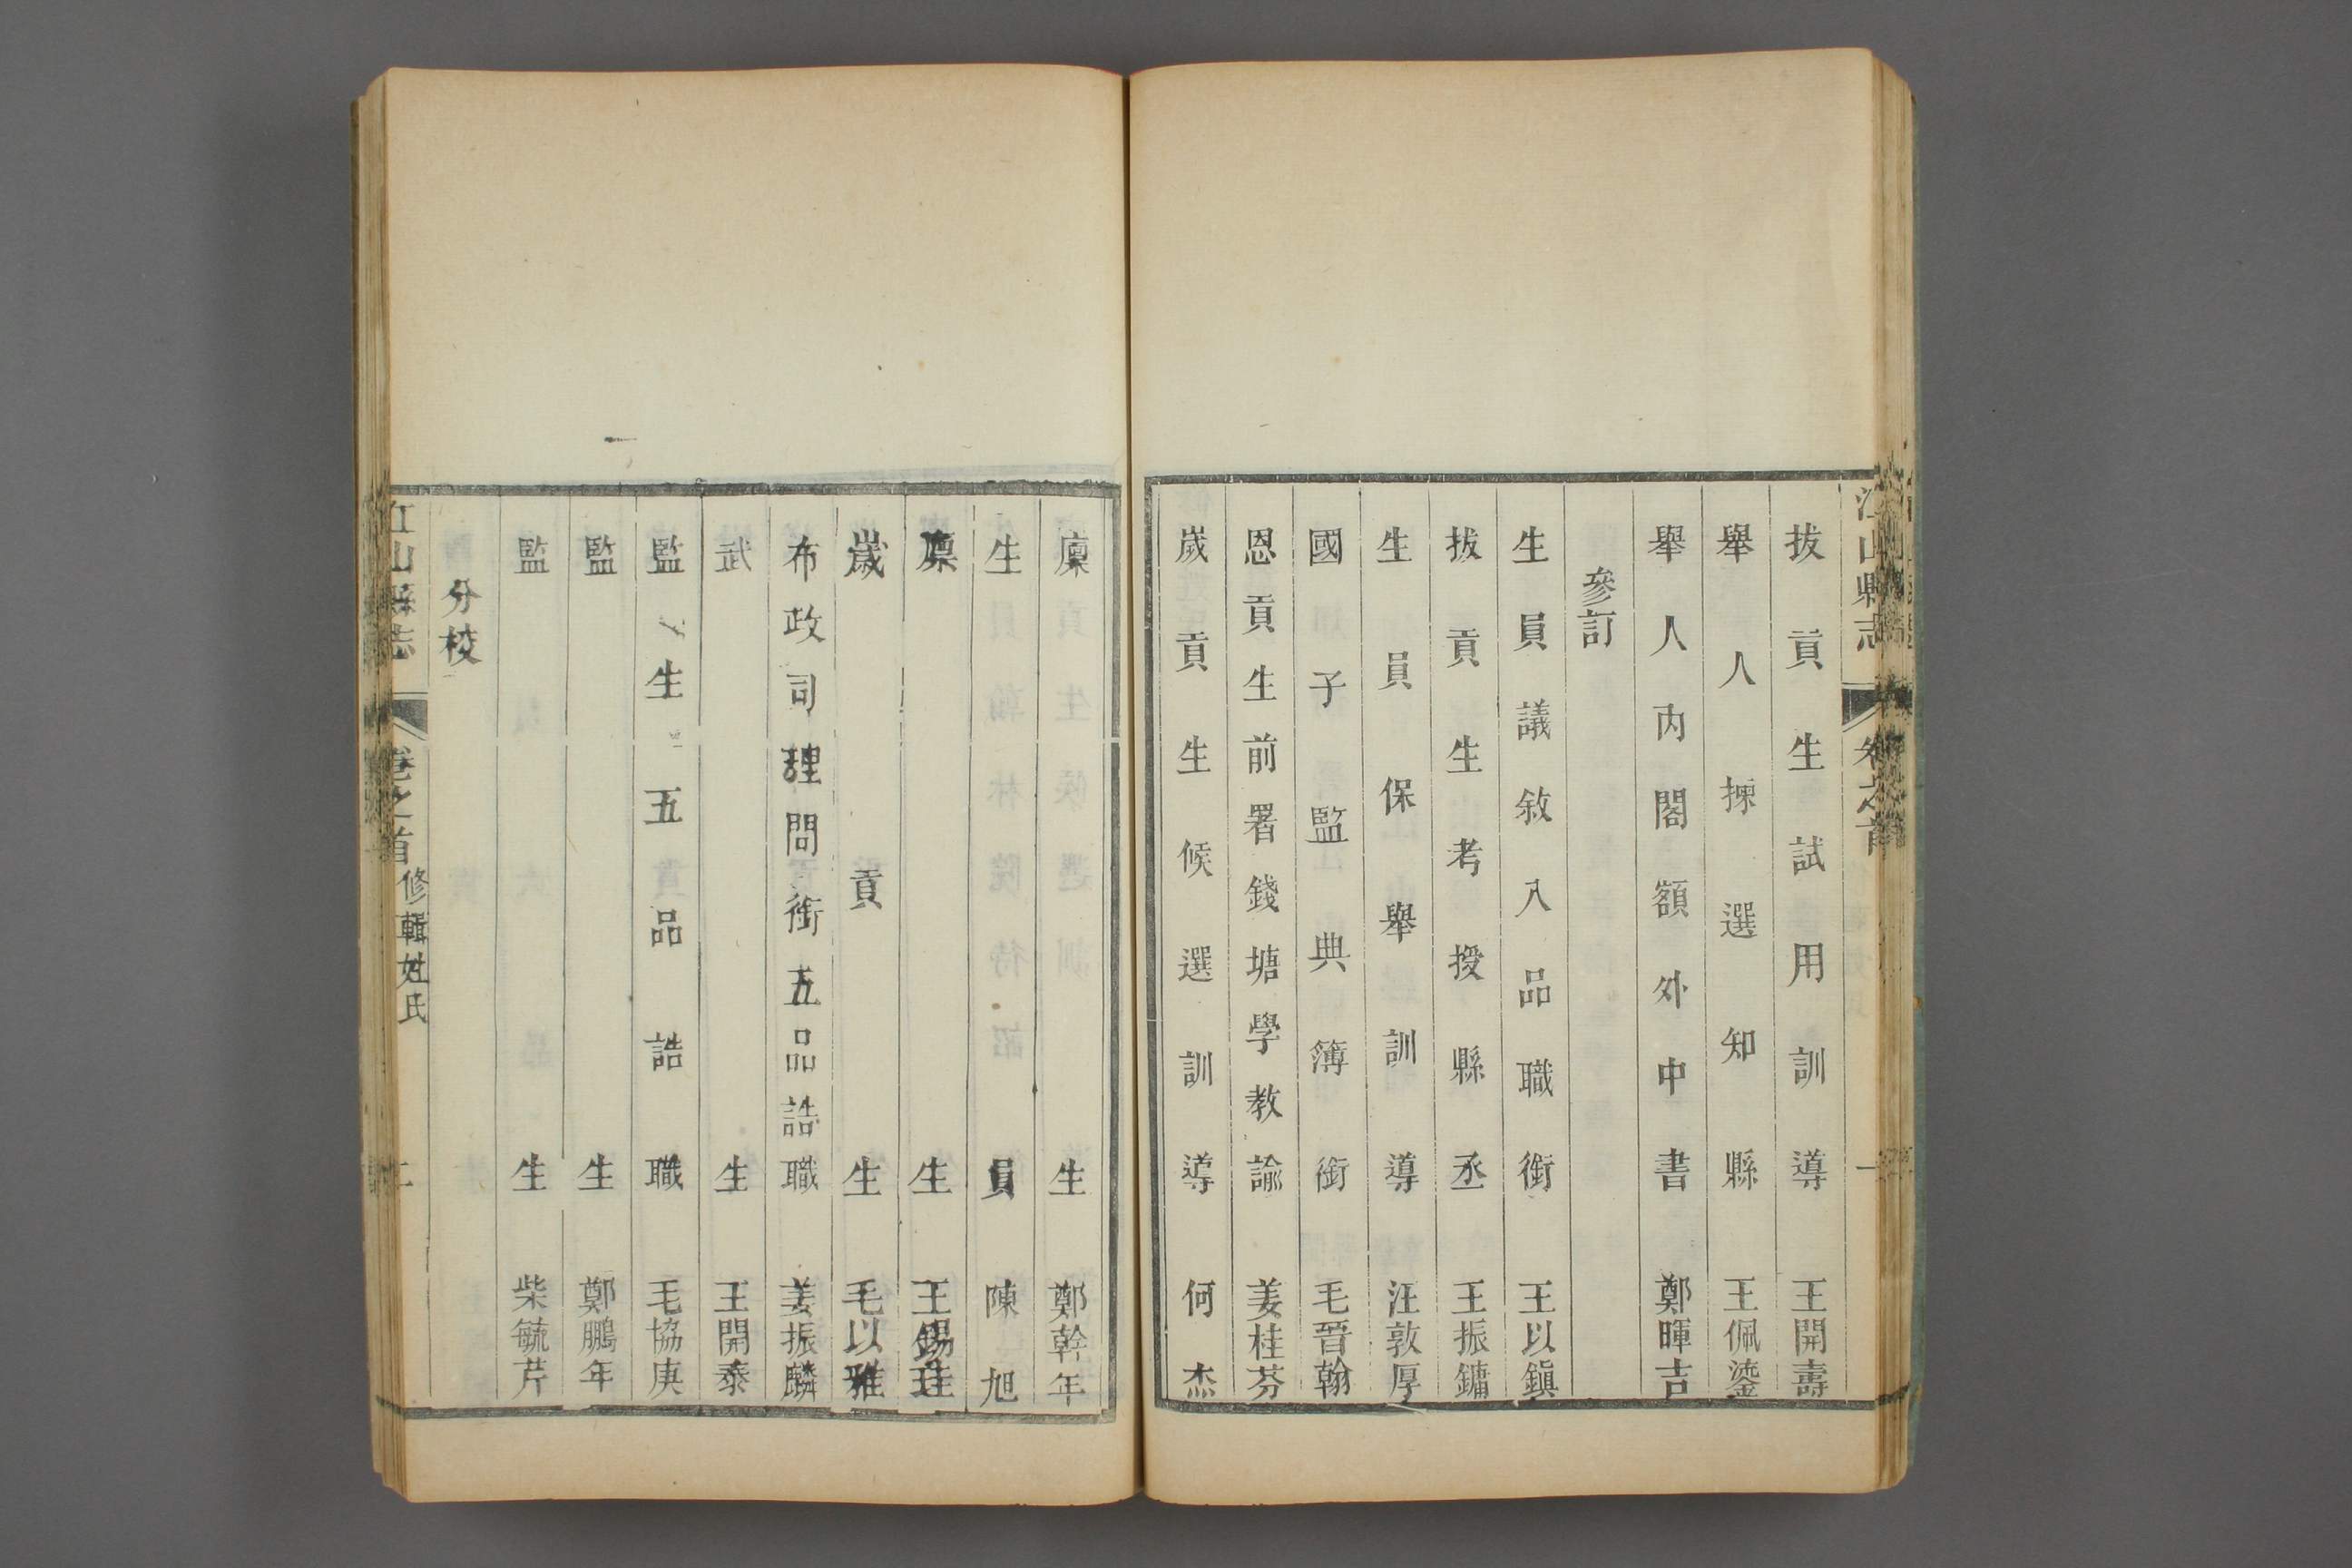 江山縣志 卷之首 一
拔貢生試用訓導 王開壽
舉人揀選知縣 王佩鎏
舉人內閣額外中書 鄭暉吉
參訂
生員議敘入品職銜 王以鎭
拔貢生考授縣丞 王振鏞
生員保舉訓導 汪敦厚
國子監典簿銜 毛晉翰
恩貢生前署錢塘學教諭 姜桂芬
歲貢生候選訓導 何杰
廩生 鄭幹年
生員 陳旭
廩生 王錫珪
歲貢生 毛以雅
布政司理問銜五品誥職 姜振麟
武生 王開泰
監生五品誥職 毛協庚
監生 鄭鵬年
監生 柴毓芹
分校
江山縣志 卷之首 修輯姓氏 二